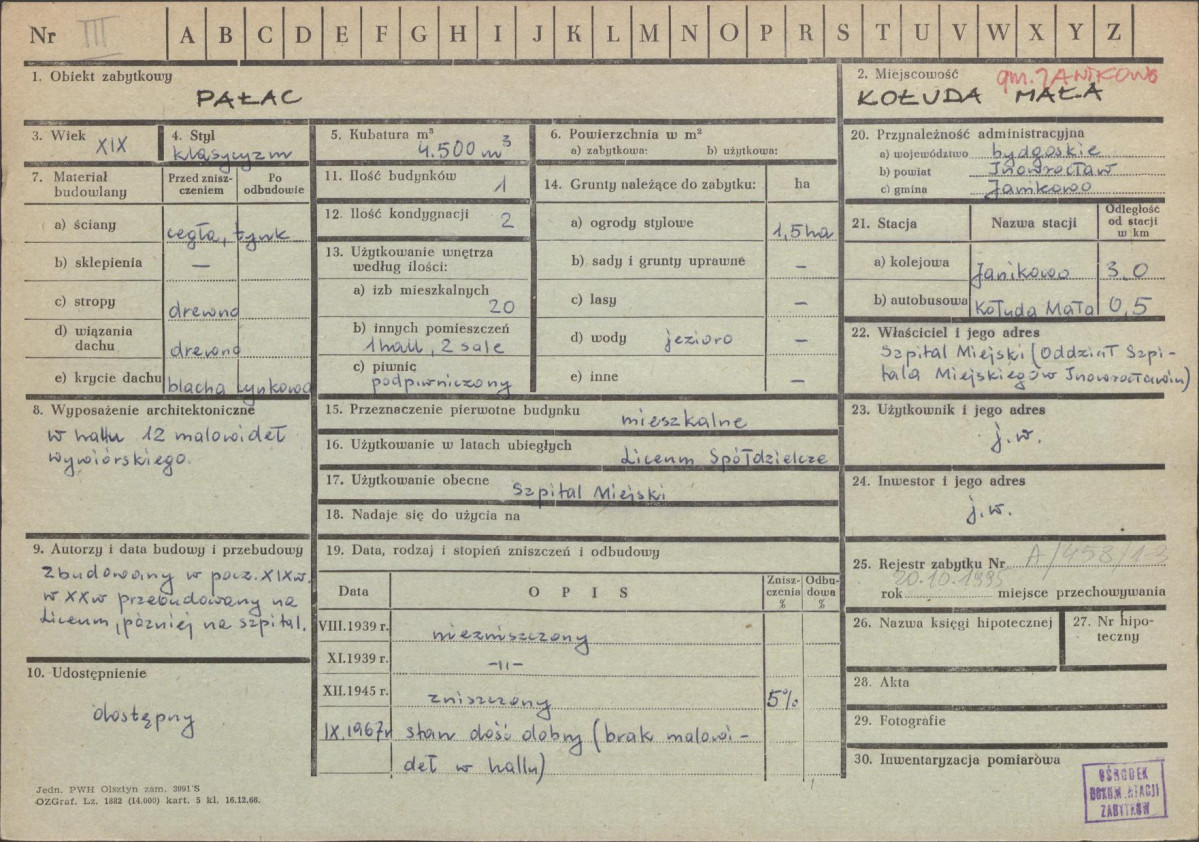 Nr III A B C D E F G H I J K L M N O P R S T U V W X Y Z
1. Obiekt zabytkowy
PAŁAC
2. Miejscowość gm. JANIKOWO
KOŁUDA MAŁA
3. Wiek XIX
4. Styl
klasycyzm
5. Kubatura m³
4.500 m³
6. Powierzchnia w m²
a) zabytkowa: b) użytkowa:
7. Materiał budowlany
Przed znisz-
czeniem
Po
odbudowie
a) ściany cegła, tynk
b) sklepienia —
c) stropy drewno
d) wiązania
dachu drewno
e) krycie dachu blacha cynkowa
11. Ilość budynków 1
12. Ilość kondygnacji 2
13. Użytkowanie wnętrza
według ilości:
a) izb mieszkalnych
20
b) innych pomieszczeń
1 hall, 2 sale
c) piwnic
podpiwniczony
14. Grunty należące do zabytku: ha
a) ogrody stylowe 1,5 ha
b) sady i grunty uprawne —
c) lasy —
d) wody jezioro —
e) inne —
8. Wyposażenie architektoniczne
w hallu 12 malowideł
Wywiórskiego.
15. Przeznaczenie pierwotne budynku mieszkalne
16. Użytkowanie w latach ubiegłych
Liceum Spółdzielcze
17. Użytkowanie obecne Szpital Miejski
18. Nadaje się do użycia na
9. Autorzy i data budowy i przebudowy
Zbudowany w pocz. XIX w.
w XX w przebudowany na
Liceum, później na szpital.
10. Udostępnienie
dostępny
19. Data, rodzaj i stopień zniszczeń i odbudowy
Data O P I S Znisz-
czenia
% Odbu-
dowa
%
VIII.1939 r. niezniszczony
XI.1939 r. -ıı-
XII.1945 r. zniszczony 5%
IX.1967r stan dość dobry (brak malowi-
deł w hallu)
20. Przynależność administracyjna
a) województwo bydgoskie
b) powiat Inowrocław
c) gmina Janikowo
21. Stacja Nazwa stacji Odległość
od stacji
w km
a) kolejowa Janikowo 3.0
b) autobusowa Kołuda Mała 0,5
22. Właściciel i jego adres
Szpital Miejski (Oddział Szpi-
tala Miejskiego w Inowrocławiu)
23. Użytkownik i jego adres
j.w.
24. Inwestor i jego adres
j.w.
25. Rejestr zabytku Nr A/458/1-3
20.10.1995
rok miejsce przechowywania
26. Nazwa księgi hipotecznej
27. Nr hipo-
teczny
28. Akta
29. Fotografie
30. Inwentaryzacja pomiarowa
Jedn. PWH Olsztyn zam. 3991'S
OZGraf. Lz. 1882 (14.000) kart. 5 kl. 16.12.66.
OŚRODEK
DOKUMENTACJI
ZABYTKÓW